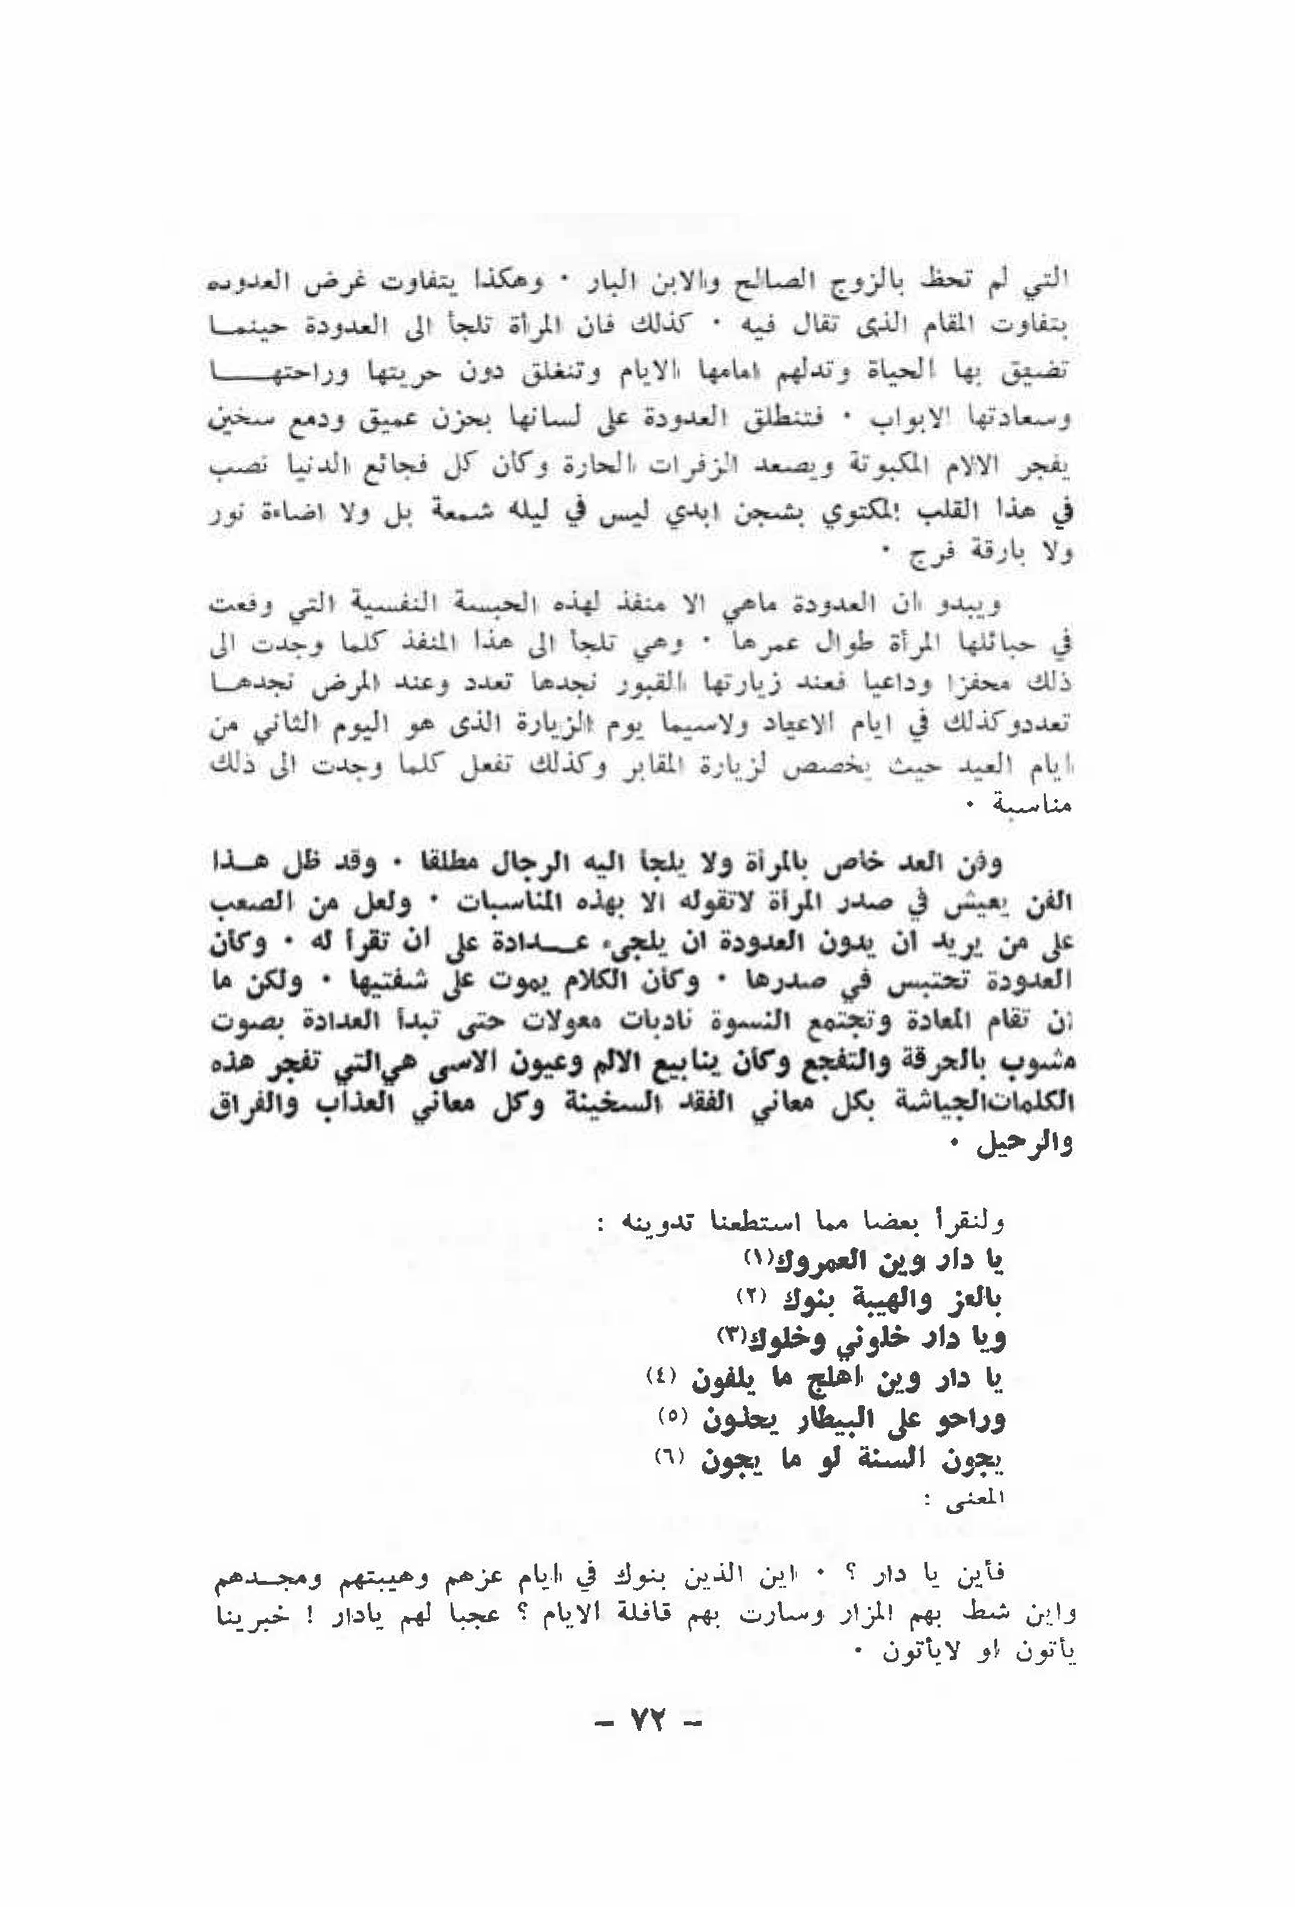 التي لم تحظ بالزوج الصالح والابن البار ٠ وهكذا يتفاوت غرض العدوده
بتفاوت المقام الذى تقال فيه ٠ كذلك فان المرأة تلجأ الى العدودة حينمــا
تضيق بها الحياة وتدلهم امامها الايام وتنغلق دون حريتها وراحتهـــــا
وسعادتها الابواب ٠ فتنطلق العدودة على لسانها بحزن عميق ودمع سخين
يفجر الالام المكبوتة ويصعد الزفرات الحارة وكأن كل فجائع الدنيا تصب
في هذا القلب المكتوي بشجن ابدي ليس في ليله شمعة بل ولا اضاءة نور
ولا بارقة فرج ٠
ويبدو ان العدودة ماهي الا منفذ لهذه الحبسة النفسية التي وقعت
في حبائلها المرأة طوال عمرها ٠ وهي تلجأ الى هذا المنفذ كلما وجدت الى
ذلك محفزا وداعيا فعند زيارتها القبور نجدها تعدد وعند المرض نجدهــا
تعددوكذلك في ايام الاعياد ولاسيما يوم الزيارة الذى هو اليوم الثاني من
ايام العيد حيث يخصص لزيارة المقابر وكذلك تفعل كلما وجدت الى ذلك
مناسبة ٠
وفن العد خاص بالمرأة ولا يلجأ اليه الرجال مطلقا ٠ وقد ظل هــذا
الفن يعيش في صدر المرأة لاتقوله الا بهذه المناسبات ٠ ولعل من الصعب
على من يريد ان يدون العدودة ان يلجىء عــدادة على أن تقرأ له ٠ وكأن
العدودة تحتبس في صدرها ٠ وكأن الكلام يموت على شفتيها ٠ ولكن ما
ان تقام المعادة وتجتمع النسوة نادبات معولات حتى تبدأ العدادة بصوت
مشوب بالحرقة والتفجع وكأن ينابيع الالم وعيون الاسى هي‌التي تفجر هذه
الكلمات‌الجياشة بكل معاني الفقد السخينة وكل معاني العذاب والفراق
والرحيل ٠
ولنقرأ بعضا مما استطعنا تدوينه :
يا دار وين العمروك(١)
بالعز والهيبة بنوك (٢)
ويا دار خلوني وخلوك(٣)
يا دار وين اهلج ما يلفون (٤)
وراحو على البيطار يحذون (٥)
يجون السنة لو ما يجون (٦)
المعنى :
فأين يا دار ؟ ٠ اين الذين بنوك في ايام عزهم وهيبتهم ومجــدهم
واين شط بهم المزار وسارت بهم قافلة الايام ؟ عجبا لهم يادار ! خبرينا
يأتون او لايأتون ٠
– ٧٢ –